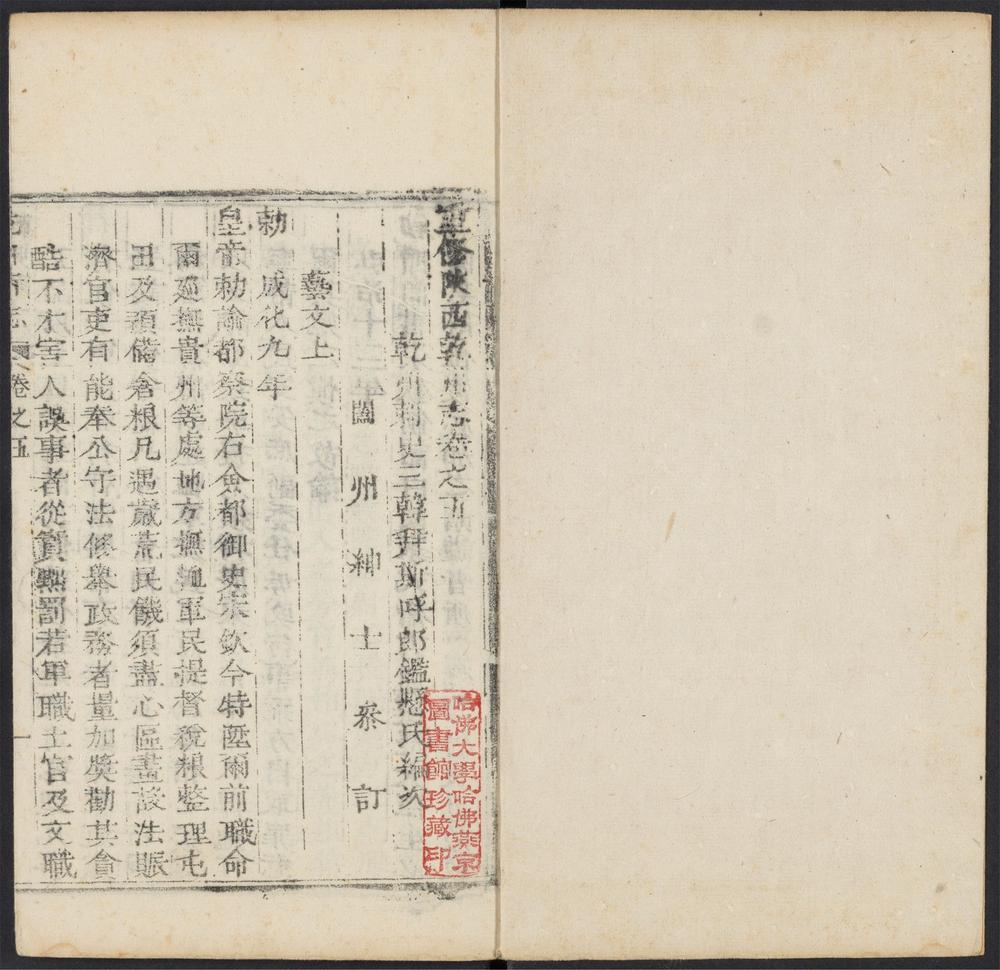 重修陝西乾州志卷之五
乾州刺史三韓拜斯呼郎鑑懸氏編次
闔州紳士叅訂
藝文上
勅成化九年
皇帝勅諭都察院右僉都御史宋欽今特陞爾前職命
爾廵撫貴州等處地方撫軍民提督稅粮整理屯
田及預備倉粮凡遇歲荒民饑須盡心區畫設法賬
濟官吏有能奉公守法修舉政務者量加獎勸其貪
酷不才害人誤事者從實黜罰若軍職土官及文職
卷之五
一
哈佛大學哈佛燕京
圖書館珍藏印